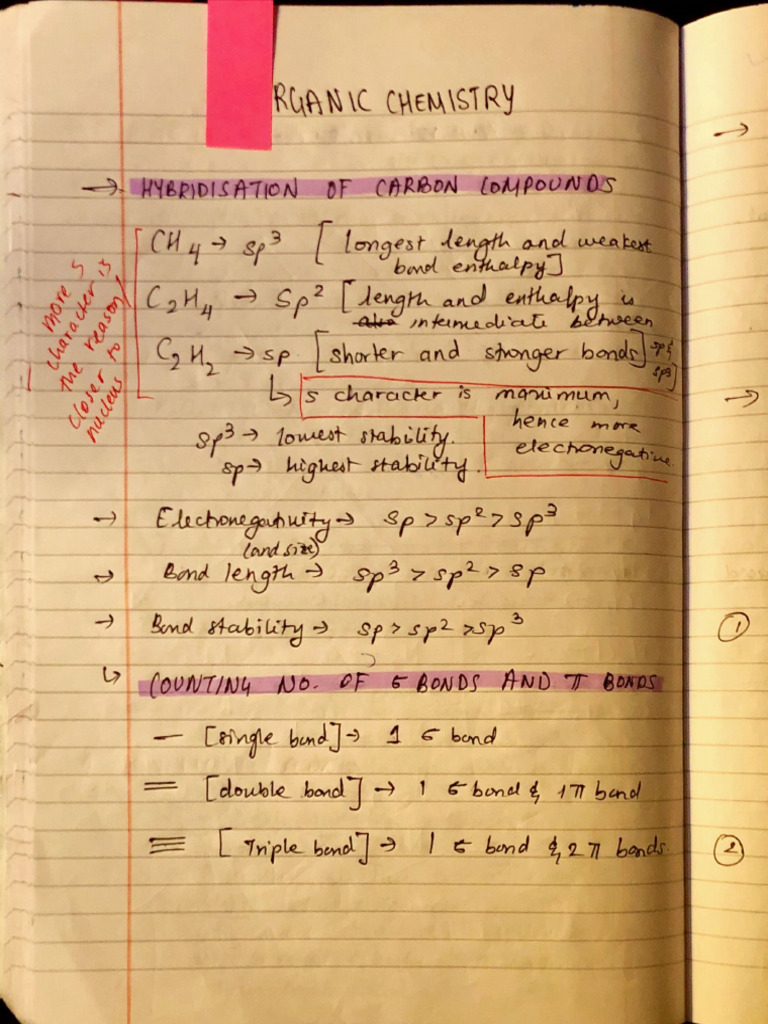 RGANIC CHEMISTRY
→ HYBRIDISATION OF CARBON COMPOUNDS
CH4 → sp³ [longest length and weakest
bond enthalpy]
C2H4 → sp² [length and enthalpy is
intermediate between
C2H2 → sp [shorter and stronger bonds] sp &
sp³]
↳ s character is maximum,
hence more
electronegative
more s
character is
the reason /
closer to
nucleus
sp³ → lowest stability.
sp → highest stability.
→ Electronegativity → sp > sp² > sp³
(and size)
→ Bond length → sp³ > sp² > sp
→ Bond stability → sp > sp² > sp³
↳ COUNTING NO. OF σ BONDS AND π BONDS
— [single bond] → 1 σ bond
= [double bond] → 1 σ bond & 1π bond
≡ [Triple bond] → 1 σ bond & 2 π bonds.
→
→
①
②